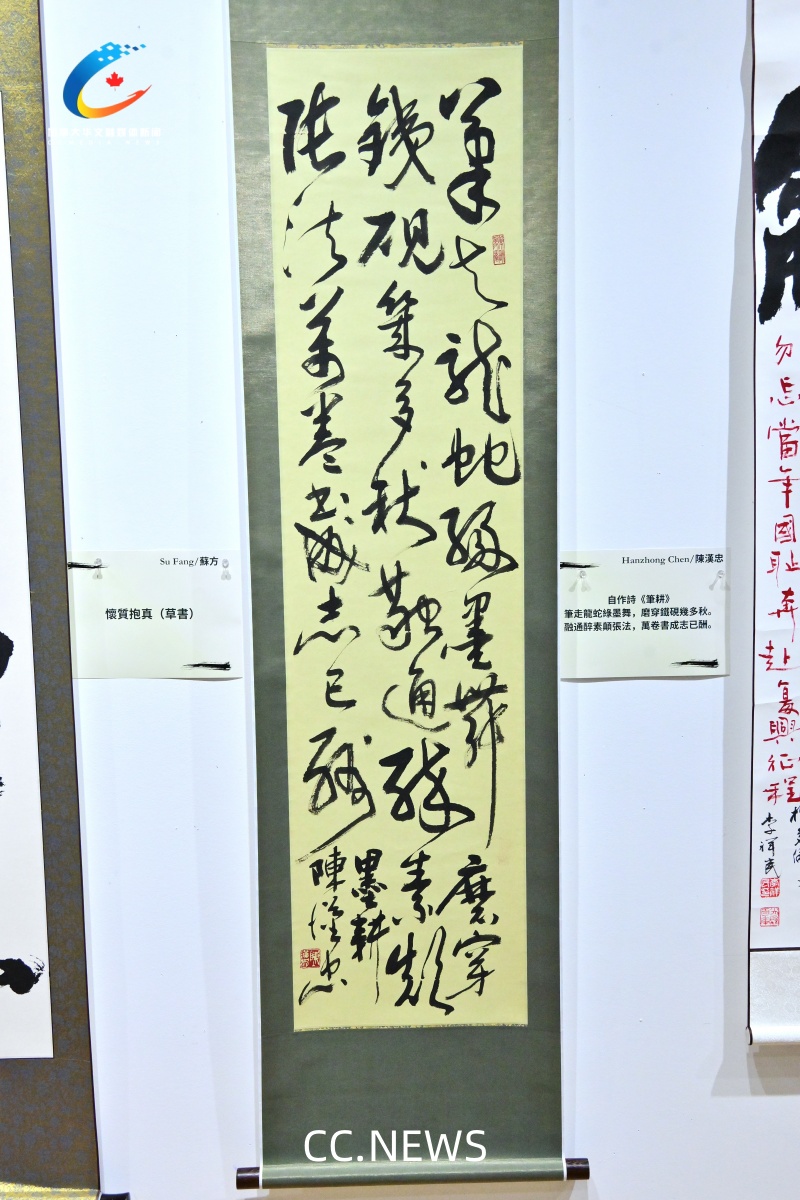 筆走龍蛇綠墨舞磨穿
鐵硯幾多秋融通醉素顛
張法萬卷書成志已酬
墨耕
陳漢忠
Su Fang/蘇方
懷質抱真（草書）
Hanzhong Chen/陳漢忠
自作詩《筆耕》
筆走龍蛇綠墨舞，磨穿鐵硯幾多秋。
融通醉素顛張法，萬卷書成志已酬。
勿忘當年國耻奔赴复興征程
李祥民
CC.NEWS